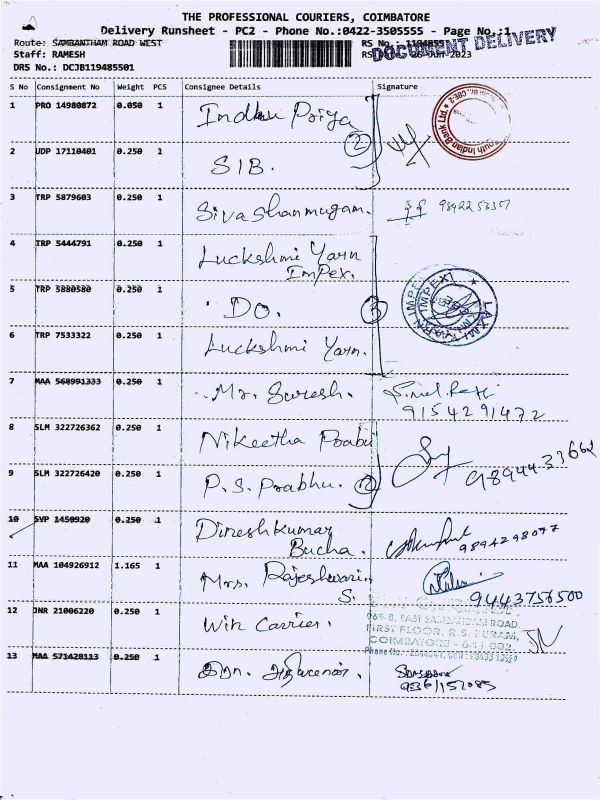 THE PROFESSIONAL COURIERS, COIMBATORE
Delivery Runsheet - PC2 - Phone No.:0422-3505555 - Page No.:1
Route: SAMBANTHAM ROAD WEST
RS No.:
DOCUMENT DELIVERY
Staff: RAMESH
DRS No.: DCJB119485501
S No Consignment No Weight PCS Consignee Details Signature
1 PRO 14980872 0.050 1 Indhu Priya
2
South Indian Bank Ltd.
2 UDP 17110401 0.250 1 SIB.
3 TRP 5879603 0.250 1 Sivashanmugam.
4 TRP 5444791 0.250 1 Luckshmi Yarn
Impex.
5 TRP 5880580 0.250 1 DO.
3
6 TRP 7533322 0.250 1 Luckshmi Yarn.
7 MAA 568991333 0.250 1 Mr. Suresh.
9154291472
8 SLM 322726362 0.250 1 Nikeetha Prabu
9 SLM 322726420 0.250 1 P.S. Prabhu.
2
9894433662
10 SVP 1450920 0.250 1 Dineshkumar
Bucha.
9894298077
11 MAA 104926912 1.165 1 Mrs. Rajeshwari
S.
9443756500
12 JNR 21006220 0.250 1 Win Carrier.
969-B, EAST SAMBANDAM ROAD
FIRST FLOOR, R.S. PURAM,
COIMBATORE - 641 002.
13 MAA 571428113 0.250 1